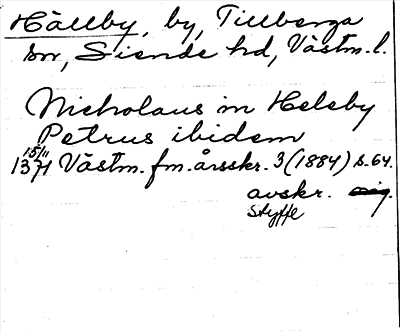 Hällby, by, Tillberga
sn, Siende hd, Västm. l.
Nicholaus in Helsby
Petrus ibidem
15/11
1371 Västm. fm. årsskr. 3 (1884) s. 64.
avskr. orig.
Styffe